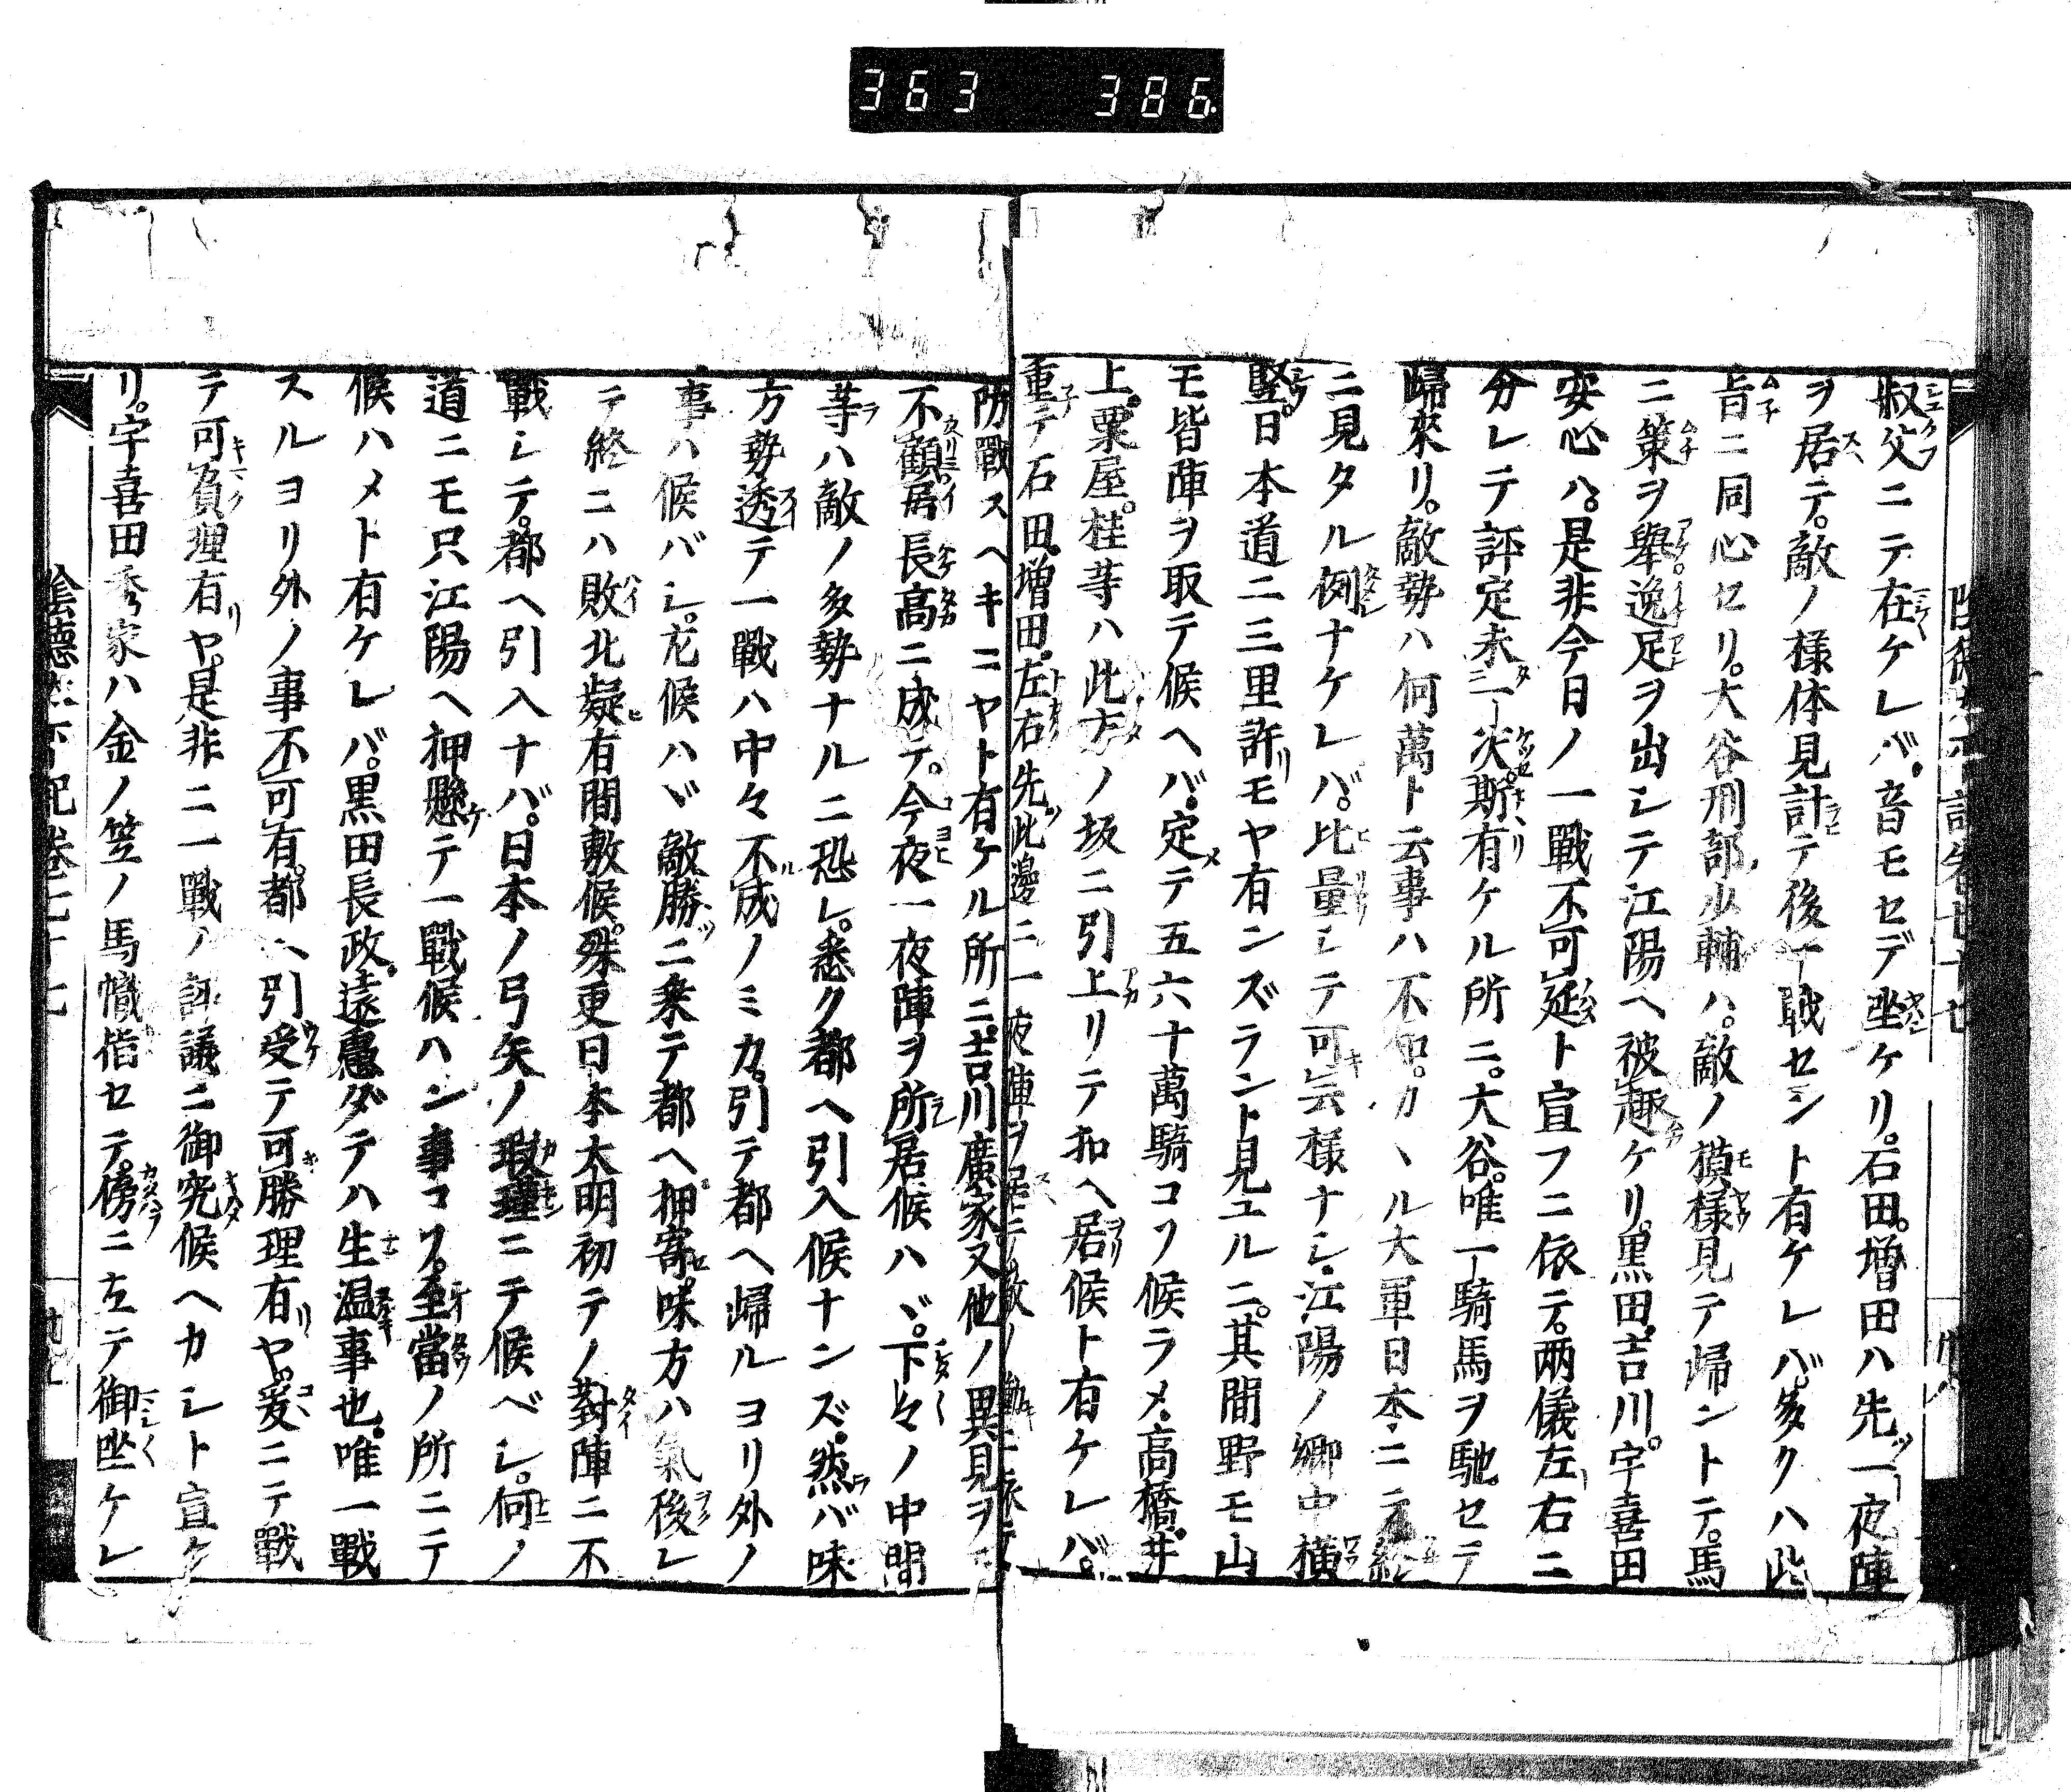 363 386
叔父ニテ在ケレバ。音モセデ坐ケリ。石田。増田ハ先一夜陣
ヲ居テ。敵ノ様体見計テ後一戦セント有ケレバ多クハ此
旨ニ同心セリ。大谷刑部少輔ハ。敵ノ模様見テ帰ントテ。馬
ニ策ヲ舉逸足ヲ出シテ江陽ヘ被趣ケリ。黒田。吉川。宇喜田
安心ハ。是非今日ノ一戰不可延ト宣フニ依テ。両儀左右ニ
分レテ評定未一決斯有ケル所ニ。大谷。唯一騎馬ヲ馳セテ
歸來リ。敵勢ハ何萬ト云事ハ不知。カヽル大軍日本ニテ終
ニ見タル例ナケレバ。比量シテ可云様ナシ。江陽ノ郷中横
竪。日本道二三里許モヤ有ンズラント見エルニ。其間野モ山
モ皆陣ヲ取テ候ヘバ。定テ五六十萬騎コソ候ラメ。高橋。井
上。粟屋。桂等ハ此方ノ坂ニ引上リテ扣ヘ居候ト有ケレバ。
重テ石田。増田。左右先此邊ニ一夜陣ヲ居ニ敵ノ動ニ依テ
防戰スヘキニヤト有ケル所ニ。吉川廣家又他ノ異見ヲモ
不顧居長高ニ成テ。今夜一夜陣ヲ所居候ハヾ。下々ノ中間
等ハ敵ノ多勢ナルニ恐レ。悉ク都ヘ引入候ナンズ。然バ味
方勢透テ一戰ハ中々不成ノミカ。引テ都ヘ帰ルヨリ外ノ
事ハ候バシ。左候ハヾ敵勝ニ乗テ都ヘ押寄。味方ハ氣後レ
テ終ニハ敗北疑有間敷候。殊更日本大明初テノ對陣ニ不
戰シテ。都ヘ引入ナバ。日本ノ弓矢ノ瑕瑾ニテ候ベシ。何ノ
道ニモ只江陽ヘ押懸テ一戰候ハン事コソ。至當ノ所ニテ
候ハメト有ケレバ。黒田長政。遠慮ダテハ生温事也。唯一戰
スルヨリ外ノ事不可有。都ヘ引受テ可勝理有ヤ。爰ニテ戰
テ可負理有ヤ。是非ニ一戰ノ評議ニ御究候ヘカシト宣ケ
リ。宇喜田秀家ハ金ノ笠ノ馬幟指セテ。傍ニ立テ御坐ケレ
陰徳太平記巻七十七